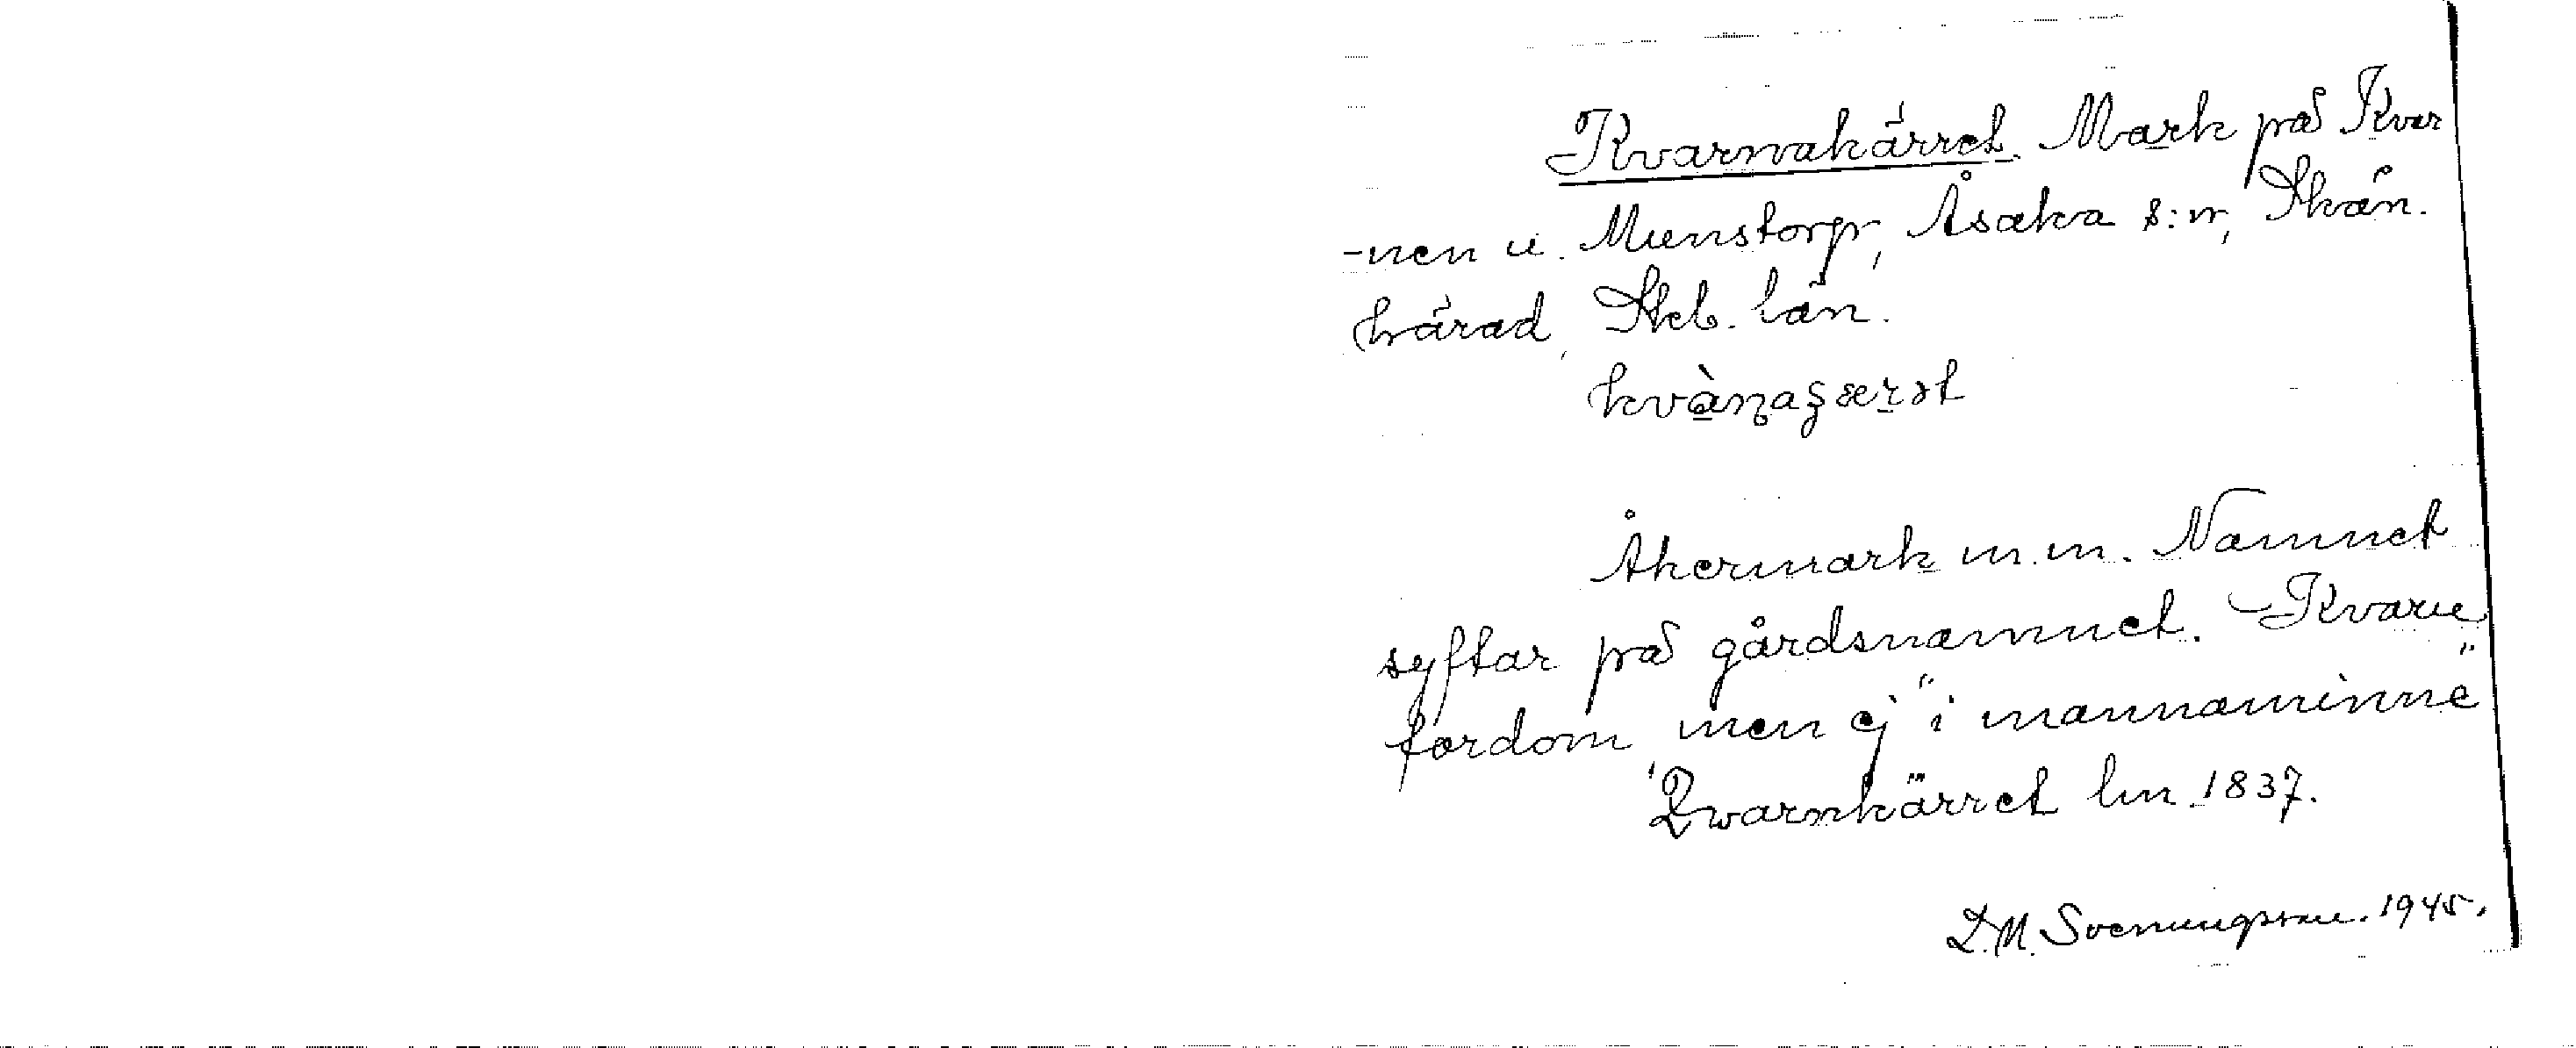 Kvarnakärret. Mark på Kvar
-nen u. Munstorp, Åsaka s:n, Skån.
härad, Skb. län.
Åkermark m.m. Namnet
syftar på gårdsnamnet. Kvarn
fordom, men ej "i mannaminne"
Qwarnkärret lm 1837.
D.M. Svenungsson. 1945.